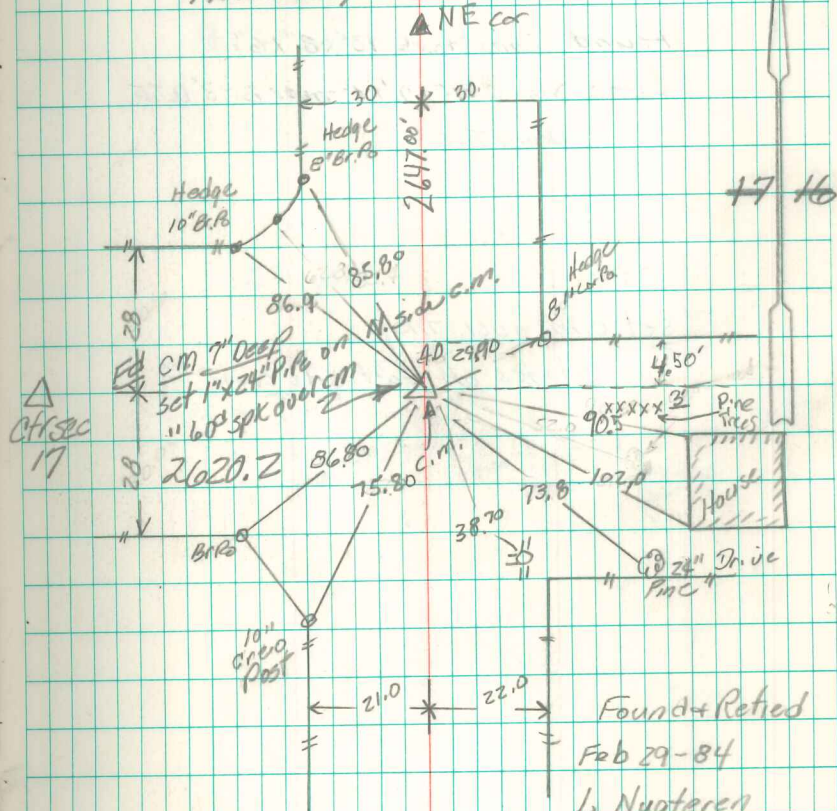 NE cor
30
30.
Hedge
8" Br.Po
2647.80'
Hedge
10" Br.Po
17 16
85.80
86.9
N. side c.m.
Hedge
8" Cor Po
28
Fd CM 7" Deep
set 1"x24" Pipe on
" 60d spk over cm
40
29.90
4.50'
xxxxx 3'
Pine
Trees
90.5
Ctr sec
17
2620.2
28
86.80
75.80
c.m.
38.70
73.8
102.0
House
Br Po
24"
Pine
Drive
10"
Creo
Post
21.0
22.0
Found & Retied
Feb 29-84